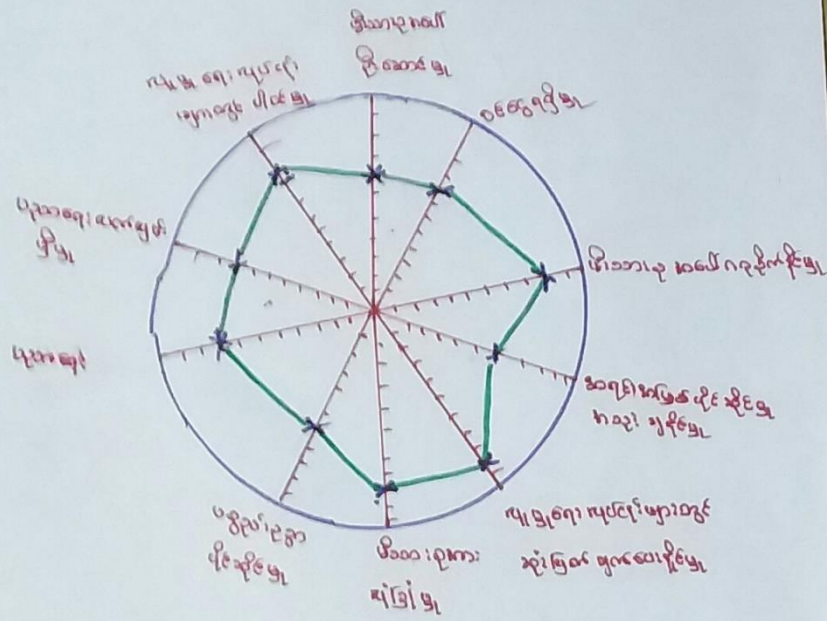 မိသားစုအပေါ်
ဦးဆောင်မှု
ဝင်ငွေရရှိမှု
မိသားစု အပေါ် ဂရုစိုက်နိုင်မှု
အရင်းအမြစ် ပိုင်ဆိုင်မှု
အသုံးချနိုင်မှု
လူမှုရေး လုပ်ငန်းများတွင်
ဆုံးဖြတ် ချက်ပေးနိုင်မှု
မိသားစုအား
ယုံကြည်မှု
ပစ္စည်းဥစ္စာ
ပိုင်ဆိုင်မှု
ပညာရေး
ပညာရေး
ရှိမှု
လူမှုရေး လုပ်ငန်း
များတွင် ပါဝင်မှု